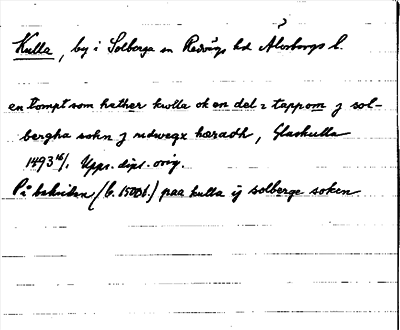 Kulla, by i Solberga sn Redvägs hd Älvsborgs l.
en tompt som hether kulla ok en del i tappom j sol-
bergha sokn j redwegx hæradh, Glaskulla
1493 16/1 Upps. dipl. orig.
På baksidan (b. 1500 t.) paa kulla ij solberge soken